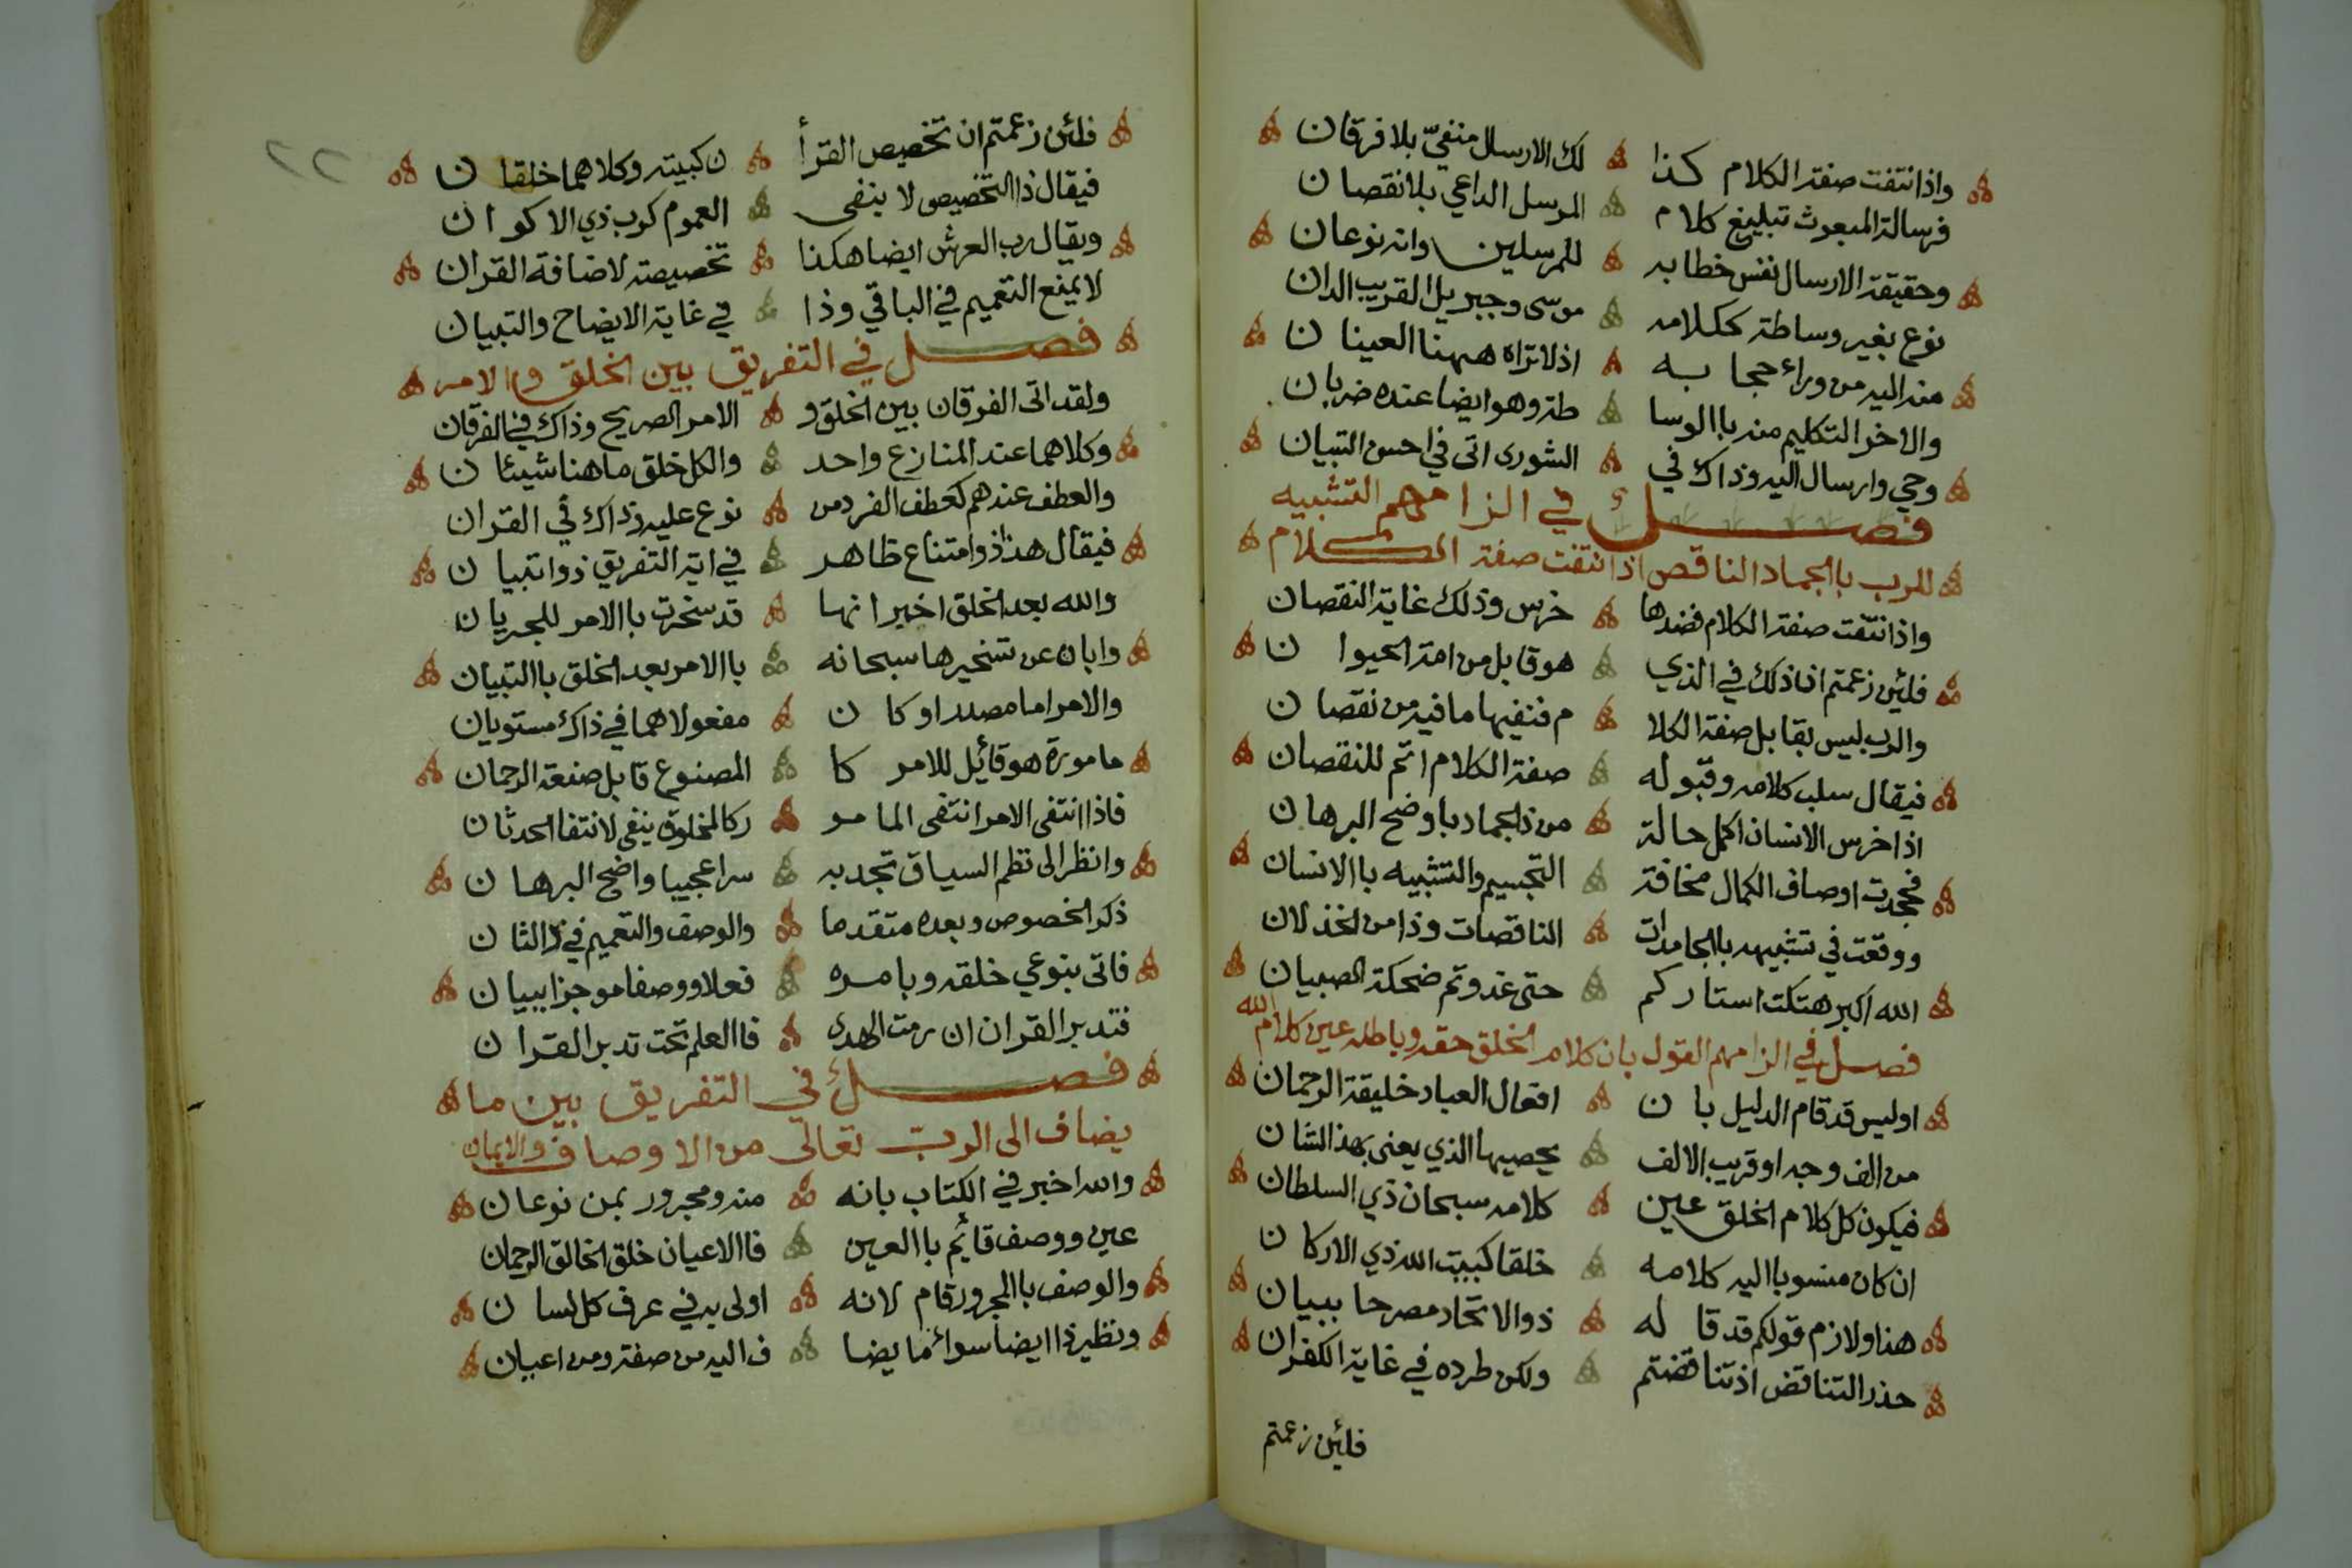 واذا انتفت صفة الكلام كذا لك الارسال منفيّ بلا فرقان
فرسالة المبعوث تبليغ كلام المرسل الداعي بلا نقصان
وحقيقة الارسال نفس خطابه للمرسلين وانه نوعان
نوع بغير وساطة ككلامه موسى وجبريل القريب الدان
منه اليه من وراء حجابه اذ لا تراه ههنا العينان
والاخر التكليم منه باالوسا طة وهو ايضا عنده ضربان
وحي وارسال اليه وذاك في الشورى اتى في احسن التبيان
فصل في الزامهم التشبيه
للرب باالجماد الناقص اذا انتفت صفة الكلام
واذا انتفت صفة الكلام فضدها خرس وذلك غاية النقصان
فلئن زعمتم ان ذلك في الذي هو قابل من امة الحيوان
والرب ليس بقابل صفة الكلا م فنفيها ما فيه من نقصان
فيقال سلب كلامه وقبوله صفة الكلام اتم للنقصان
اذ اخرس الانسان اكمل حالة من ذا الجماد باوضح البرهان
فجحدت اوصاف الكمال مخافة التجسيم والتشبيه باالانسان
ووقعت في تشبيهه باالجامدات الناقصات وذا من الخذلان
الله اكبر هتكت استاركم حتى غدوتم ضحكة الصبيان
فصل في الزامهم القول بان كلام الخلق حقه وباطله عين كلام الله
اوليس قد قام الدليل بان افعال العباد خليقة الرحمان
من الف وجه او قريب الالف يحصيها الذي يعنى بهذا الشان
فيكون كل كلام الخلق عين كلامه سبحان ذي السلطان
ان كان منسوبا اليه كلامه خلقا كبيت الله ذي الاركان
هذا ولازم قولكم قد قاله ذو الاتحاد مصرحا ببيان
حذر التناقض اذ تناقضتم ولكن طرده في غاية الكفران
فلئن زعمتم
٢٢
فلئن زعمتم ان تخصيص القرأ ن كبيته وكلاهما خلقان
فيقال ذا التخصيص لا ينفى العموم كرب ذي الاكوان
ويقال رب العرش ايضا هكذا تخصيصه لاضافة القران
لا يمنع التعميم في الباقي وذا في غاية الايضاح والتبيان
فصل في التفريق بين الخلق والامر
ولقد اتى الفرقان بين الخلق و الامر الصريح وذاك في الفرقان
وكلاهما عند المنازع واحد والكل خلق ما هنا شيئان
والعطف عندهم كعطف الفرد من نوع عليه وذاك في القران
فيقال هذا ذو امتناع ظاهر في اية التفريق ذو اتبيان
والله بعد الخلق اخبر انها قد سخرت باالامر للجريان
وابان عن تسخيرها سبحانه باالامر بعد الخلق باالتبيان
والامر اما مصدر او كان مفعولا هما في ذاك مستويان
مامورة هو قائل للامر كا المصنوع قابل صنعة الرحمان
فاذا انتفى الامر انتفى المامو ر كالمخلوق ينفى لانتفا الحدثان
وانظر الى نظم السياق تجد به سرا عجيبا واضح البرهان
ذكر الخصوص وبعده متقدما والوصف والتعميم في ذا الثان
فاتى بنوعي خلقه وبامره فعلا ووصفا موجزا ببيان
فتدبر القران ان رمت الهدى فاالعلم تحت تدبر القران
فصل في التفريق بين ما
يضاف الى الرب تعالى من الاوصاف والاعيان
والله اخبر في الكتاب بانه منه ومجرور بمن نوعان
عين ووصف قائم باالعين فاالاعيان خلق الخالق الرحمان
والوصف باالمجرور قام لانه اولى به في عرف كل لسان
ونظير ذا ايضا سواء ما يضا ف اليه من صفة ومن اعيان